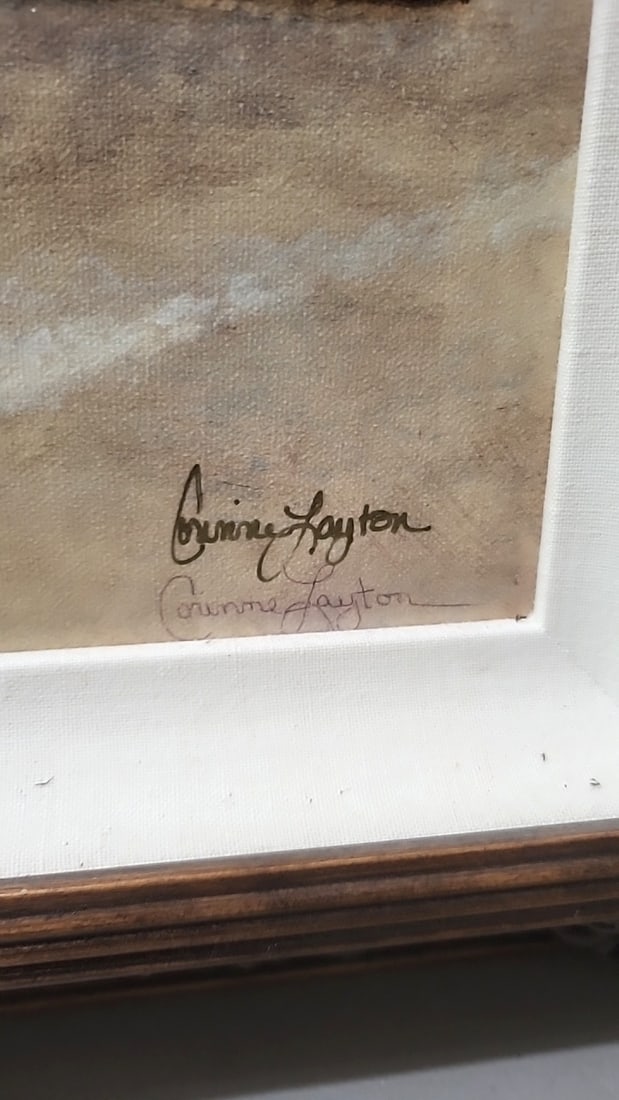 Corinne Layton
Corinne Layton